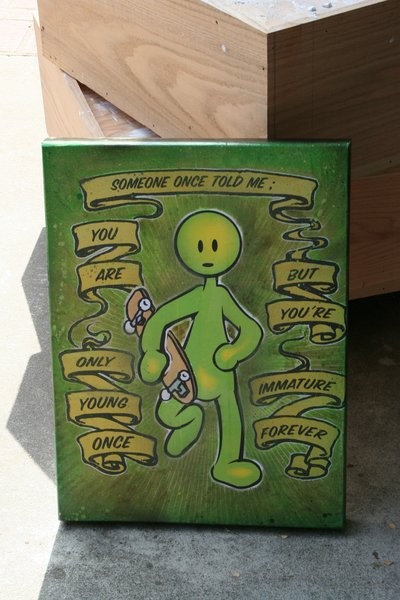 SOMEONE ONCE TOLD ME;
YOU
ARE
ONLY
YOUNG
ONCE
BUT
YOU'RE
IMMATURE
FOREVER